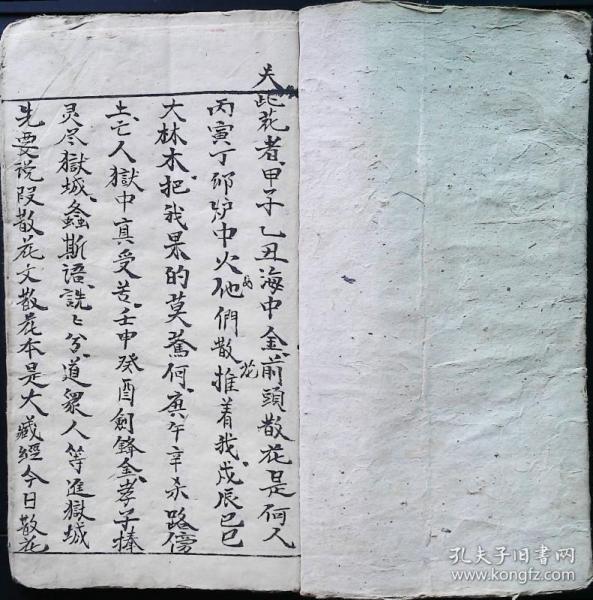 夫此花者甲子乙丑海中金前頭散花是何人
丙寅丁卯炉中火他們散花推着我戊辰己巳
大林木把我果的莫奈何庚午辛未路傍
土亡人獄中真受苦壬申癸酉剑鋒金孝子捧
灵尽獄城螽斯語詵〻兮道眾人等進獄城
先要说段散花文散花本是大藏經今日散花
孔夫子旧书网
www.kongfz.com